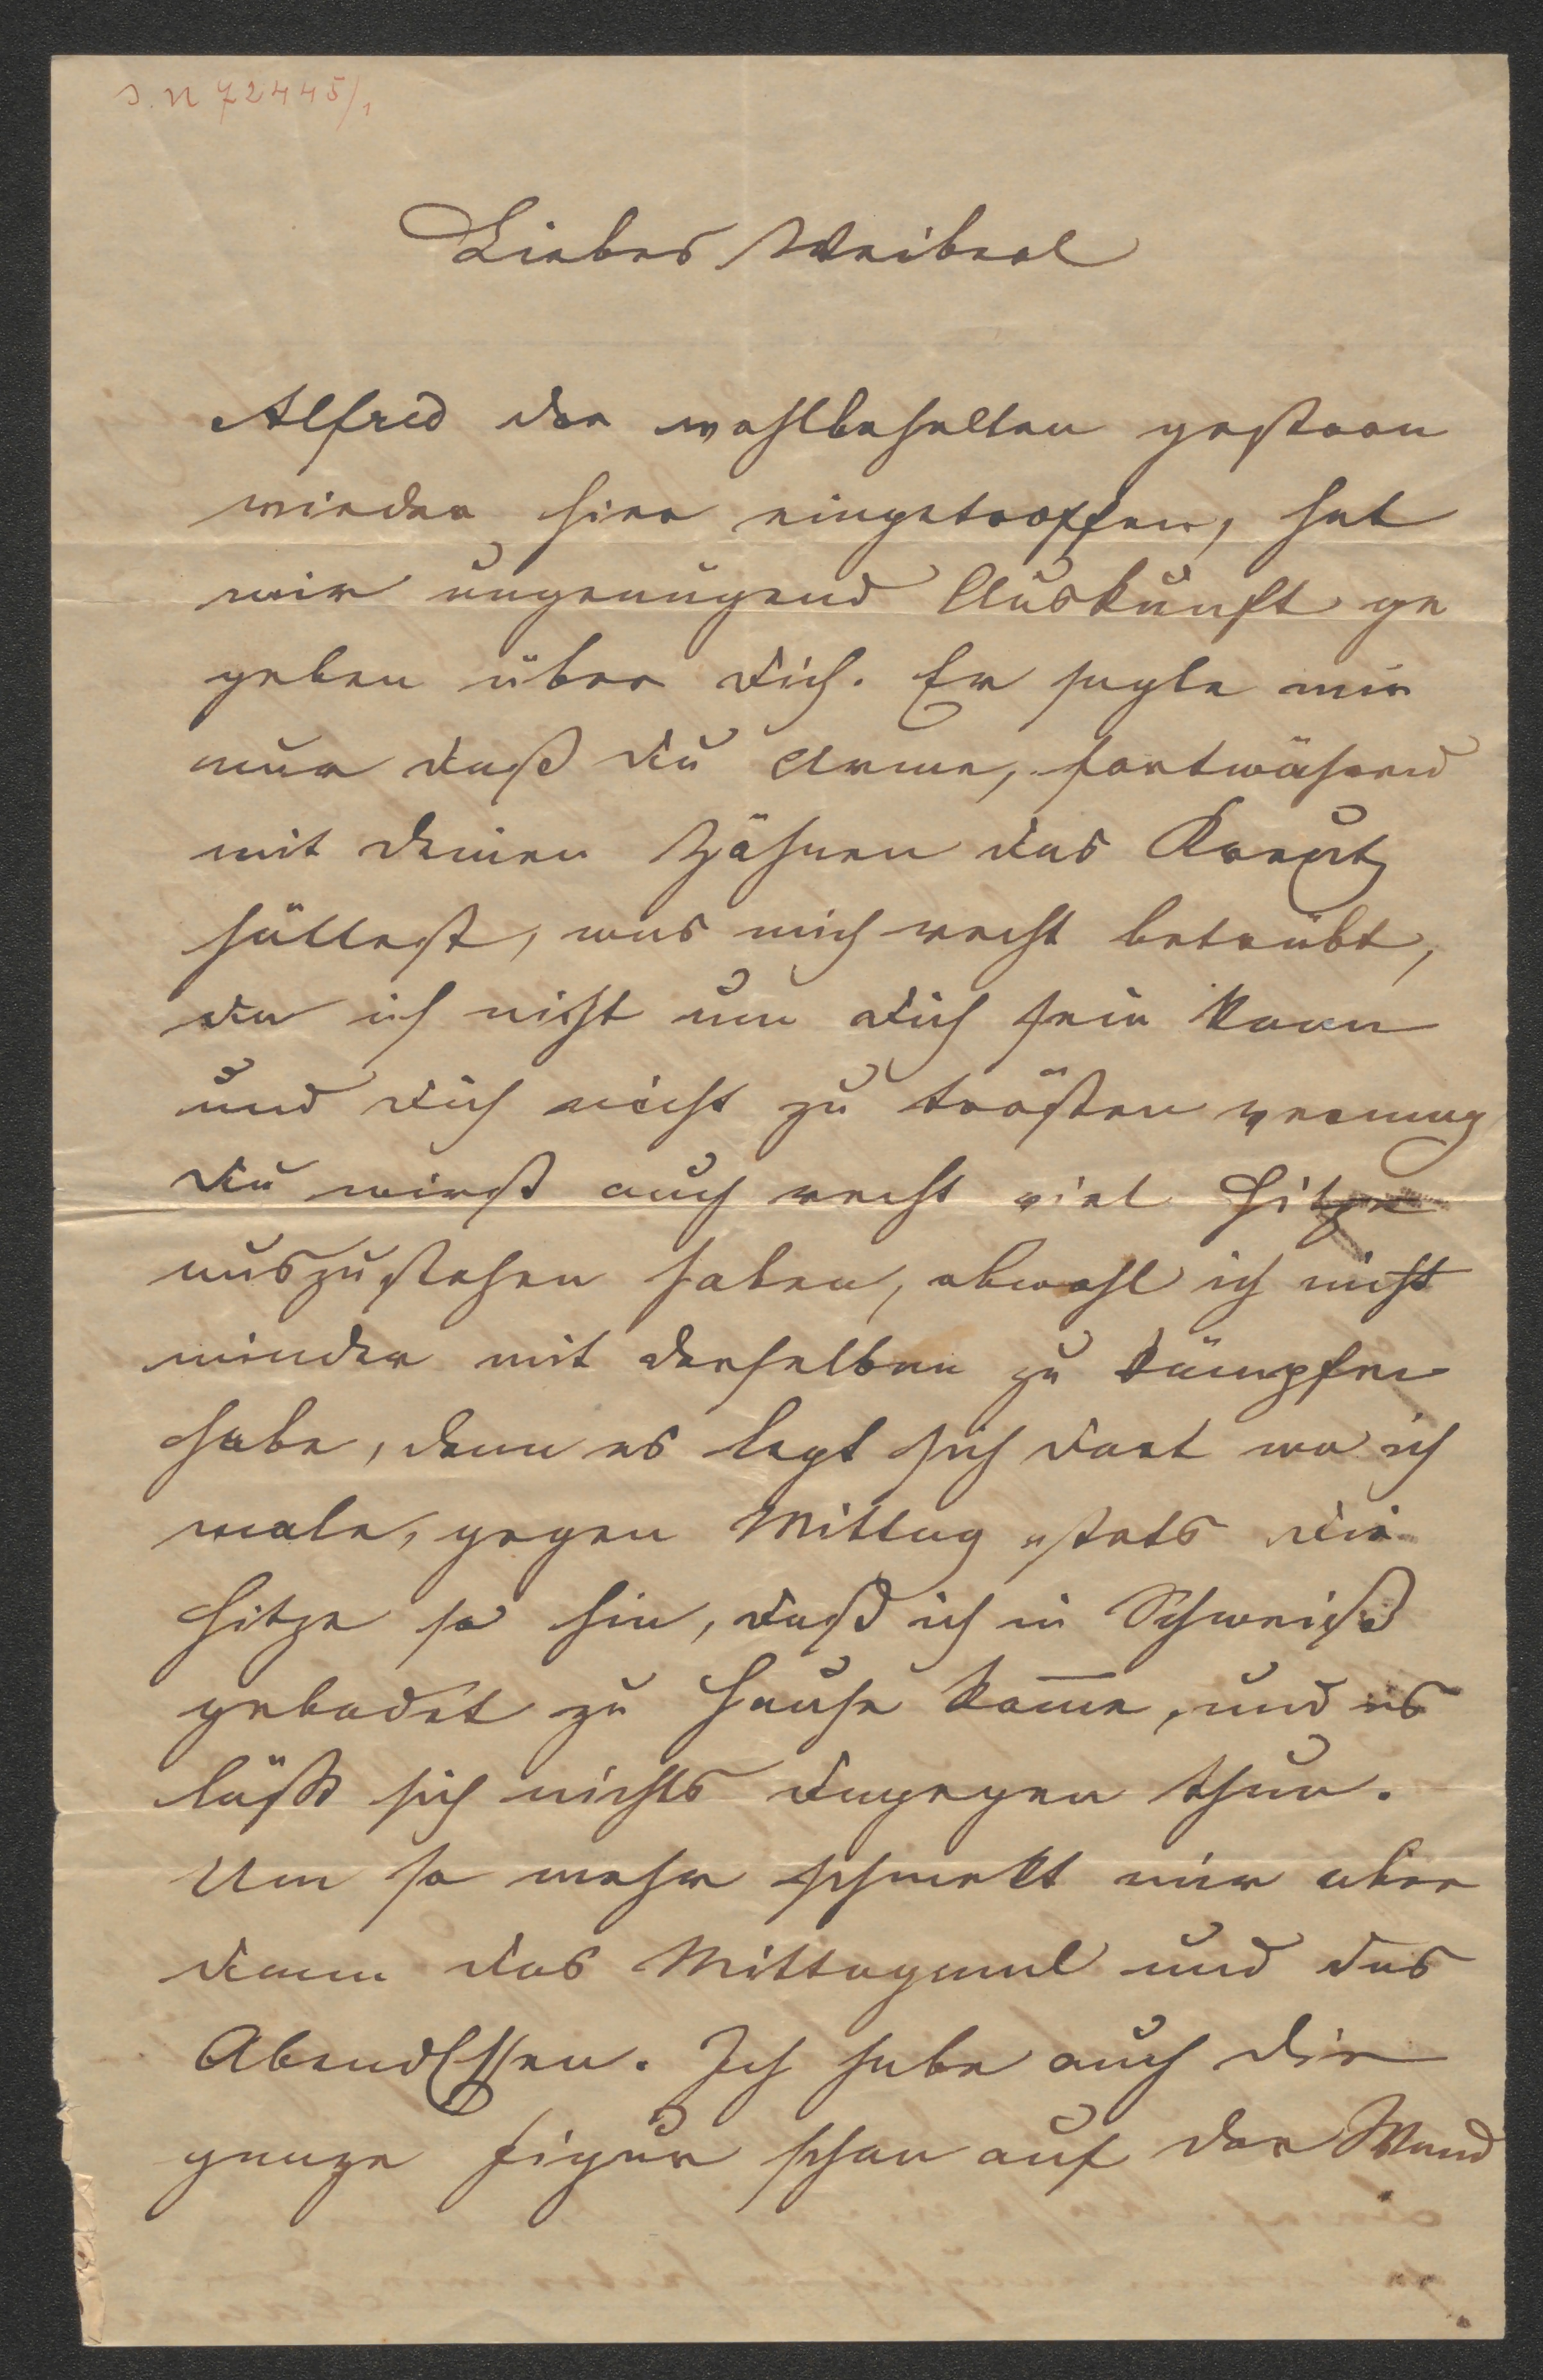 I.N 72445/1
Liebes Weiberl
Alfred der wohlbehalten gestern
wieder hier eingetroffen, hat
mir ungenügend Auskunft ge
geben über Dich. Er sagte mir
nur daß du Arme, fortwährend
mit deinen Zähnen das Kreutz
hättest, was mich recht betrübt,
da ich nicht um dich sein kann
und dich nicht zu trösten vermag
du wirst auch recht viel Hitze
auszustehen haben, obwohl ich nicht
minder mit derselben zu kämpfen
habe, denn es legt sich dort wo ich
male, gegen Mittag stets die
Hitze so hin, daß ich in Schweiß
gebadet zu Hause kom̅e, und es
läßt sich nichts dagegen thun.
Um so mehr schmekt mir aber
dann das Mittagmal und das
AbendEssen. Ich habe auch die
ganze Figur schon auf der Wand